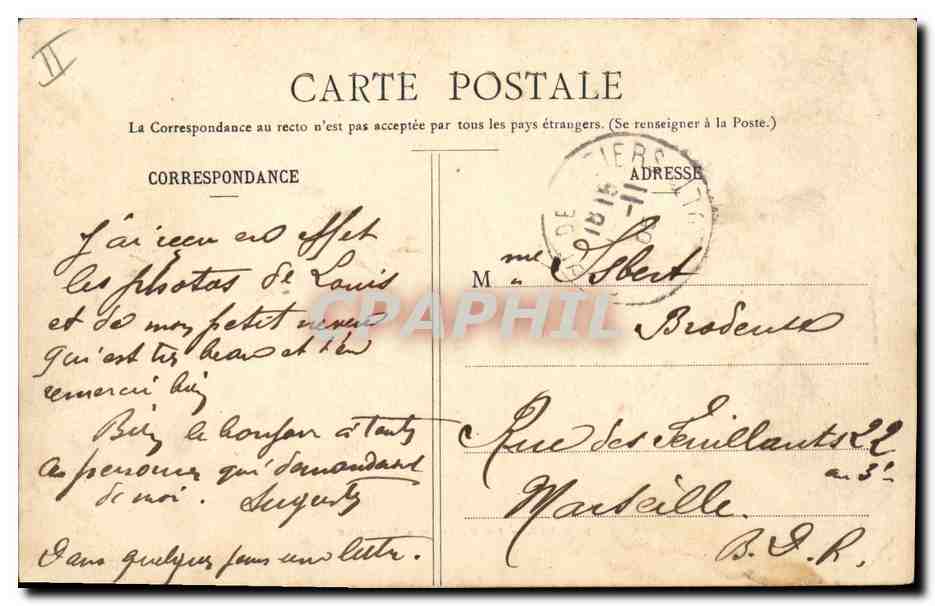 II
CARTE POSTALE
La Correspondance au recto n'est pas acceptée par tous les pays étrangers. (Se renseigner à la Poste.)
CORRESPONDANCE
J'ai reçu en effet
les photos de Louis
et de mon petit neveu
qui est très beau et t'en
remercie bien
Bien le bonjour à toutes
ces personnes qui demandent
de moi. Augusta
Dans quelques jours une lettre.
ADRESSE
Mme Isbert
Brodeuse
Rue des Feuillants 22
au 3e
Marseille.
B. D. R.
CPAPHIL